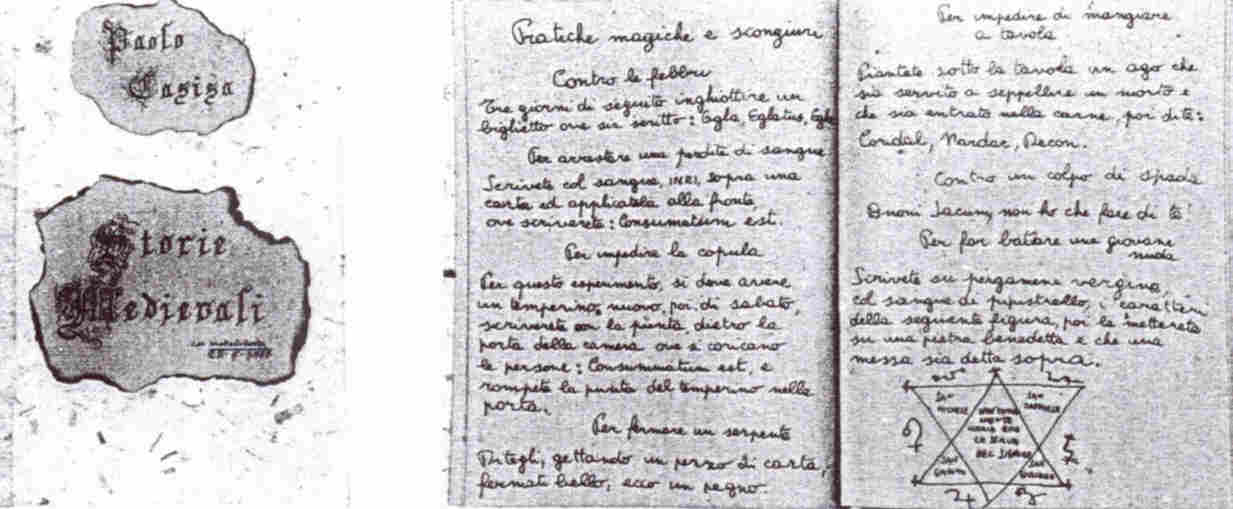 Paolo
Casisa
Storie
Medievali
Pratiche magiche e scongiuri
Contro le febbri
Tre giorni di seguito inghiottire un
biglietto ove sia scritto: Egla, Eglatus, Egla
Per arrestare una perdita di sangue
Scrivete col sangue, INRI, sopra una
carta ed applicatela alla fronte,
ove scriverete: Consumatum est.
Per impedire la copula
Per questo esperimento, si deve avere
un temperino nuovo, poi di sabato,
scriverete con la punta dietro la
porta della camera ove si coricano
le persone: Consummatum est, e
rompete la punta del temperino nella
porta.
Per fermare un serpente
Ditegli, gettando un pezzo di carta,
fermati bello, ecco un pegno.
Per impedire di mangiare
a tavola
Piantate sotto la tavola un ago che
sia servito a seppellire un morto e
che sia entrato nella carne, poi dite:
Coridal, Nardac, Decon.
Contro un colpo di spada
Buoni Jacum, non ho che fare di te!
Per far ballare una giovane
nuda
Scrivete su pergamena vergine,
col sangue di pipistrello, i caratteri
della seguente figura, poi la metterete
su una pietra benedetta e che una
messa sia detta sopra.
SAN
MICHELE
SAN
RAFFAELE
SAN
SAN